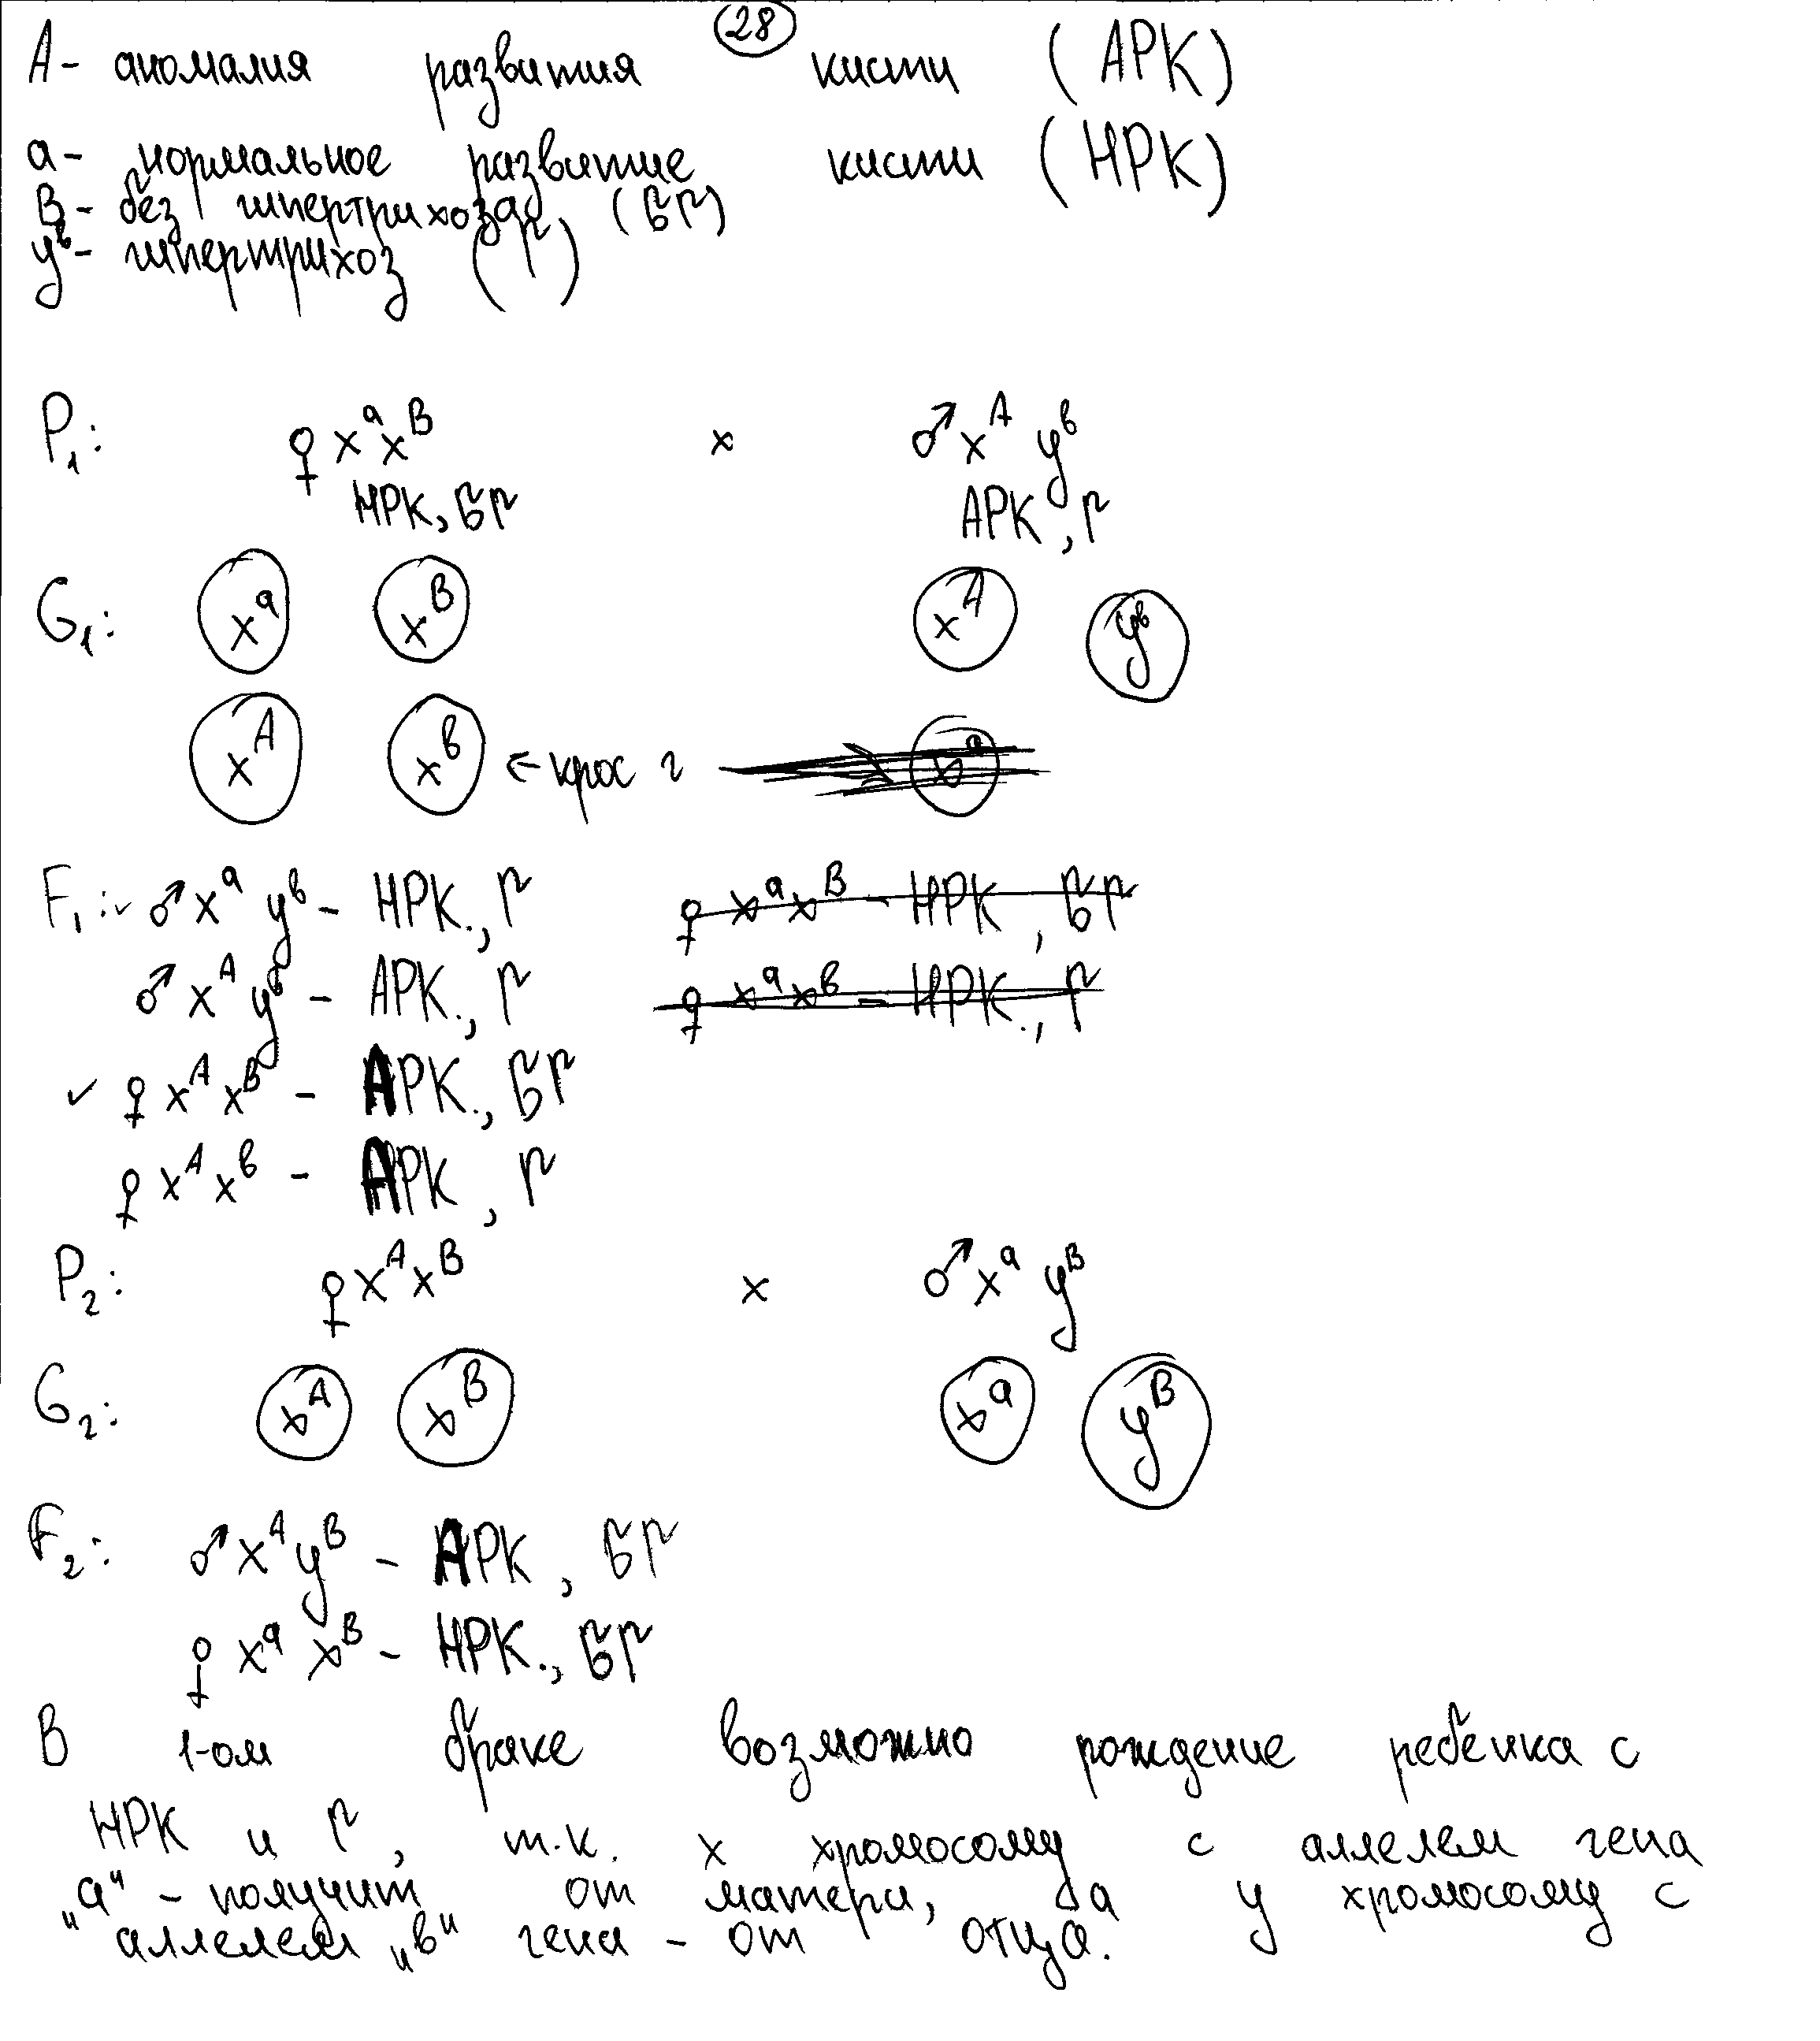 28
А - аномалия развития кисти (АРК)
а - нормальное развитие кисти (НРК)
В - без гипертрихоза (БГ)
yᵇ - гипертрихоз (Г)
P₁: ♀ xᵃxᴮ x ♂ xᴬ yᵇ
НРК, БГ АРК, Г
G₁: xᵃ xᴮ xᴬ yᵇ
xᴬ xᵇ ← крос г
F₁: ✓ ♂ xᵃ yᵇ - НРК., Г ♀ xᵃxᴮ - НРК, БГ
♂ xᴬ yᵇ - АРК., Г ♀ xᵃxᵇ - НРК., Г
✓ ♀ xᴬ xᴮ - АРК., БГ
♀ xᴬ xᵇ - АРК, Г
P₂: ♀ xᴬxᴮ x ♂ xᵃ yᴮ
G₂: xᴬ xᴮ xᵃ yᴮ
F₂: ♂ xᴬyᴮ - АРК, БГ
♀ xᵃ xᴮ - НРК., БГ
В 1-ом браке возможно рождение ребенка с
НРК и Г, т.к. х хромосому с аллелем гена
„а" - получит от матери, а у хромосому с
аллелем „в" гена - от отца.